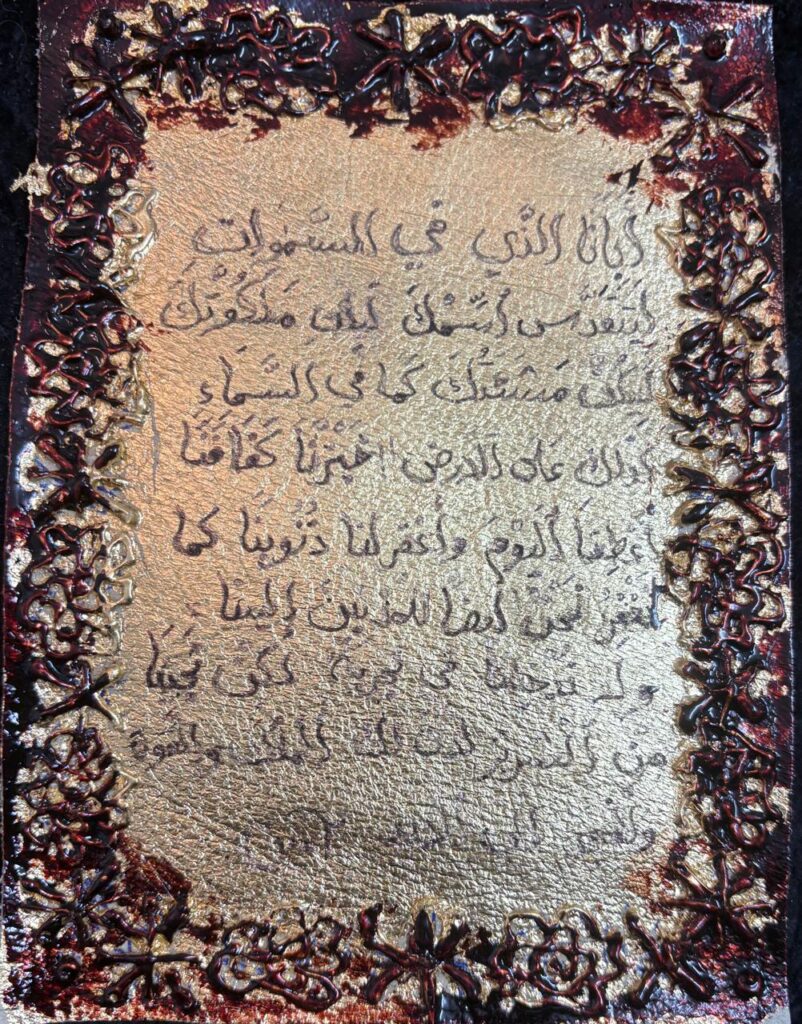 أَبَانَا الذَّي في السَّموات
لِيَتَقَدَّس أسْمُكَ لَيأتِ مَلَكُوْتَكَ
لِتَكُن مَشئَتُكَ كَما في السَّمَاء
كذلك عَلى الأرض خُبْزَنَا كَفَافَنَا
أعْطِنَا أليَوْمَ وأغْفِر لنا ذُنُوبِنَا كما
نَغْفِرُ نَحْنُ أيضاً للمذنبينَ إلَينَا
ولا تدخلنا في تجربة لكن نَجِّينَا
مِنْ ألشرير لأن لَكَ ألمُلْكَ والقوة
والمجد